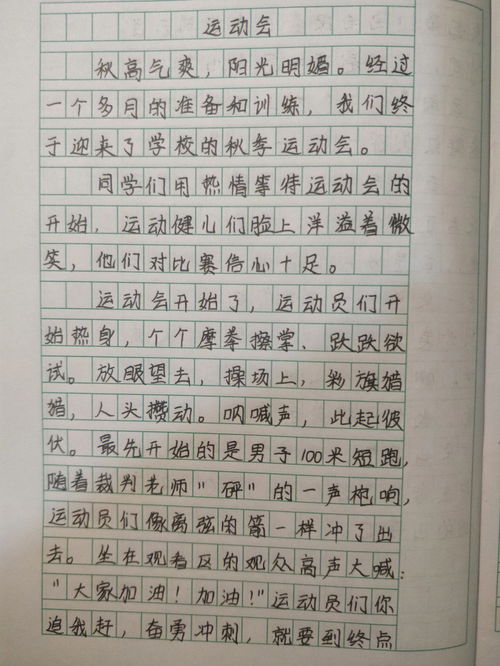 运动会
秋高气爽，阳光明媚。经过
一个多月的准备和训练，我们终
于迎来了学校的秋季运动会。
同学们用热情等待运动会的
开始，运动健儿们脸上洋溢着微
笑，他们对比赛信心十足。
运动会开始了，运动员们开
始热身，个个摩拳擦掌、跃跃欲
试。放眼望去，操场上，彩旗婚
婚，人头攒动。呐喊声，此起彼
伏。最先开始的是男子100米短跑，
随着裁判老师“砰”的一声枪响，
运动员们像离弦的箭一样冲了出
去。坐在观看区的观众高声大喊：
“大家加油！加油！”运动员们你
追我赶，奋勇冲刺，就要到终点